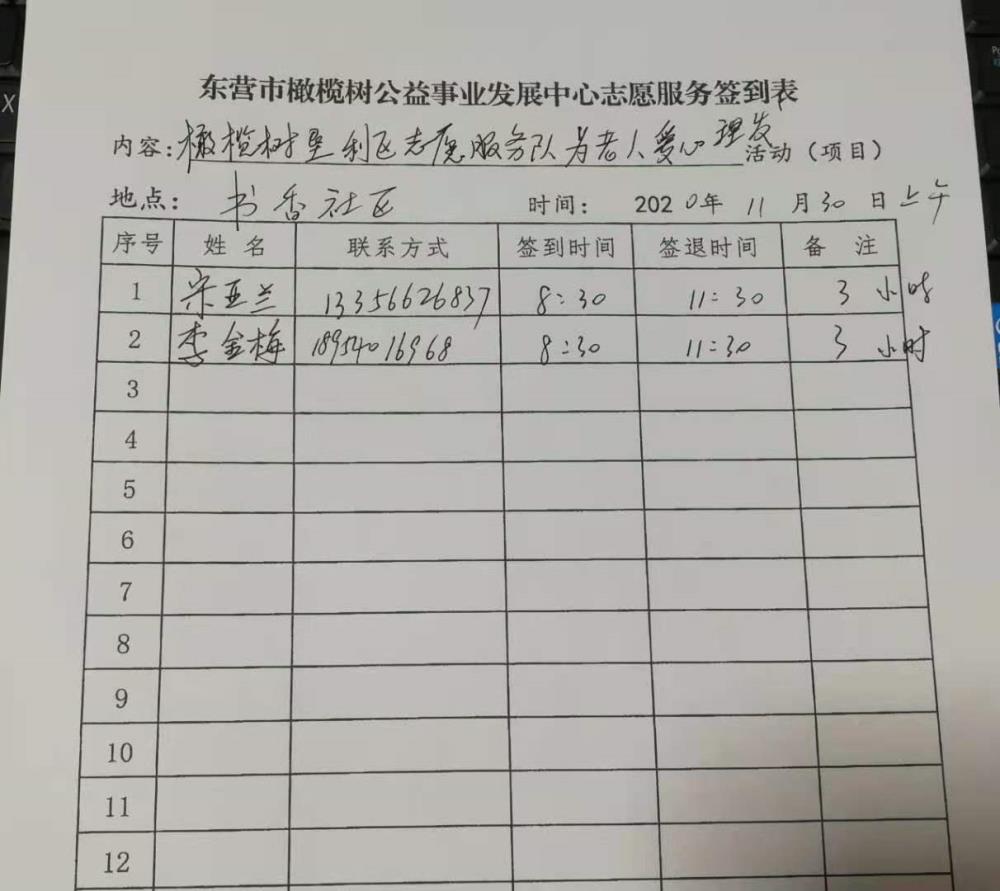 东营市橄榄树公益事业发展中心志愿服务签到表
内容：橄榄树垦利区志愿服务队为老人爱心理发活动（项目）
地点： 书香社区 时间： 2020年 11 月 30 日 上午
序号 姓名 联系方式 签到时间 签退时间 备 注
1 宋亚兰 13356626837 8:30 11:30 3 小时
2 李金梅 18954016968 8:30 11:30 3 小时
3
4
5
6
7
8
9
10
11
12